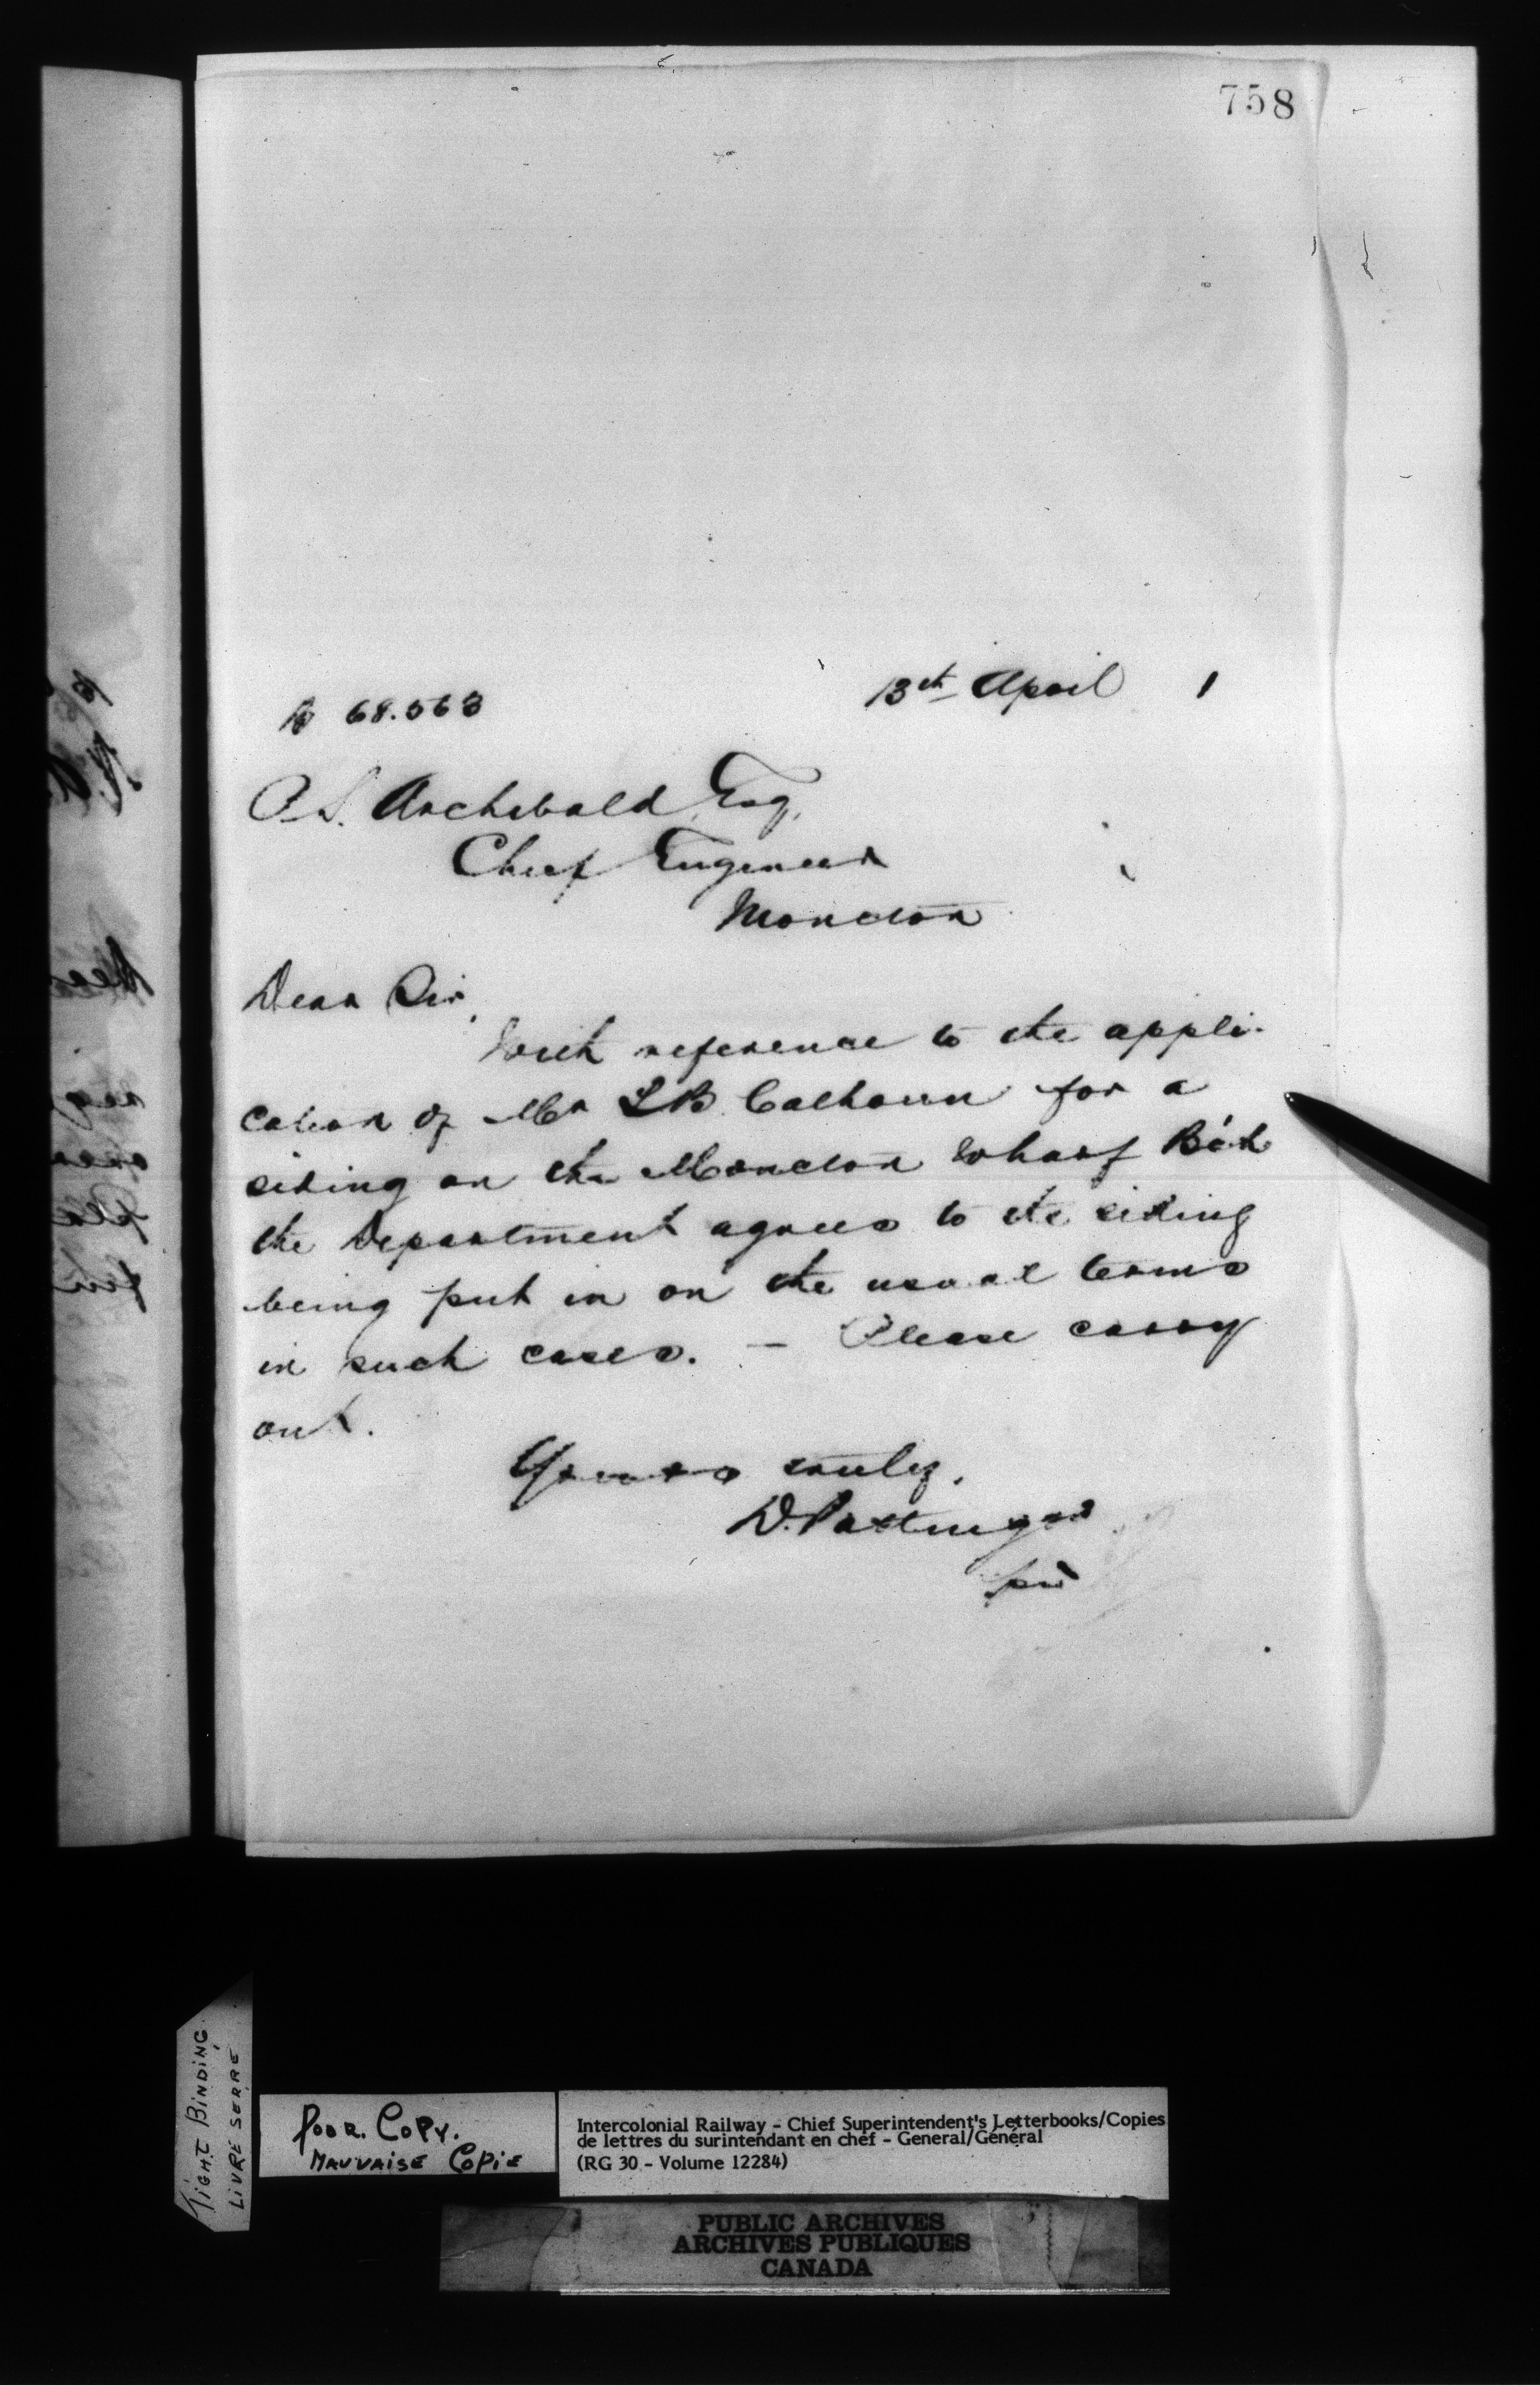 758
13th April 1
68.563
P.S. Archibald, Esq,
Chief Engineer
Moncton
Dear Sir,
With reference to the appli-
cation of Mr L B Calhoun for a
siding on the Moncton Wharf Bch
the Department agrees to the siding
being put in on the usual terms
in such cases. — Please carry
out.
Yours truly,
D. Pottinger
TIGHT BINDING
LIVRE SERRÉ
POOR COPY.
MAUVAISE COPIE
Intercolonial Railway - Chief Superintendent's Letterbooks/Copies
de lettres du surintendant en chef - General/Général
(RG 30 - Volume 12284)
PUBLIC ARCHIVES
ARCHIVES PUBLIQUES
CANADA